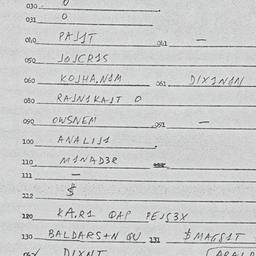 030 0
031 0
040 PAJ1T 041 —
050 JOJCR1S
060 KOJHA.N1M 061 DIX1N1M
080 RAJN1KAJT O
090 OWSNEM 091 —
100 ANALIJ1
110 M1NAD3R
111 —
112 $
120 KA,R1 QAP PEJS3X
130 BALDARS+N QU 131 $MAGS1T
DIXNT